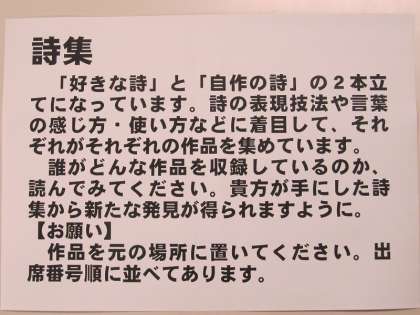 詩集
「好きな詩」と「自作の詩」の２本立
てになっています。詩の表現技法や言葉
の感じ方・使い方などに着目して、それ
ぞれがそれぞれの作品を集めています。
誰がどんな作品を収録しているのか、
読んでみてください。貴方が手にした詩
集から新たな発見が得られますように。
【お願い】
作品を元の場所に置いてください。出
席番号順に並べてあります。